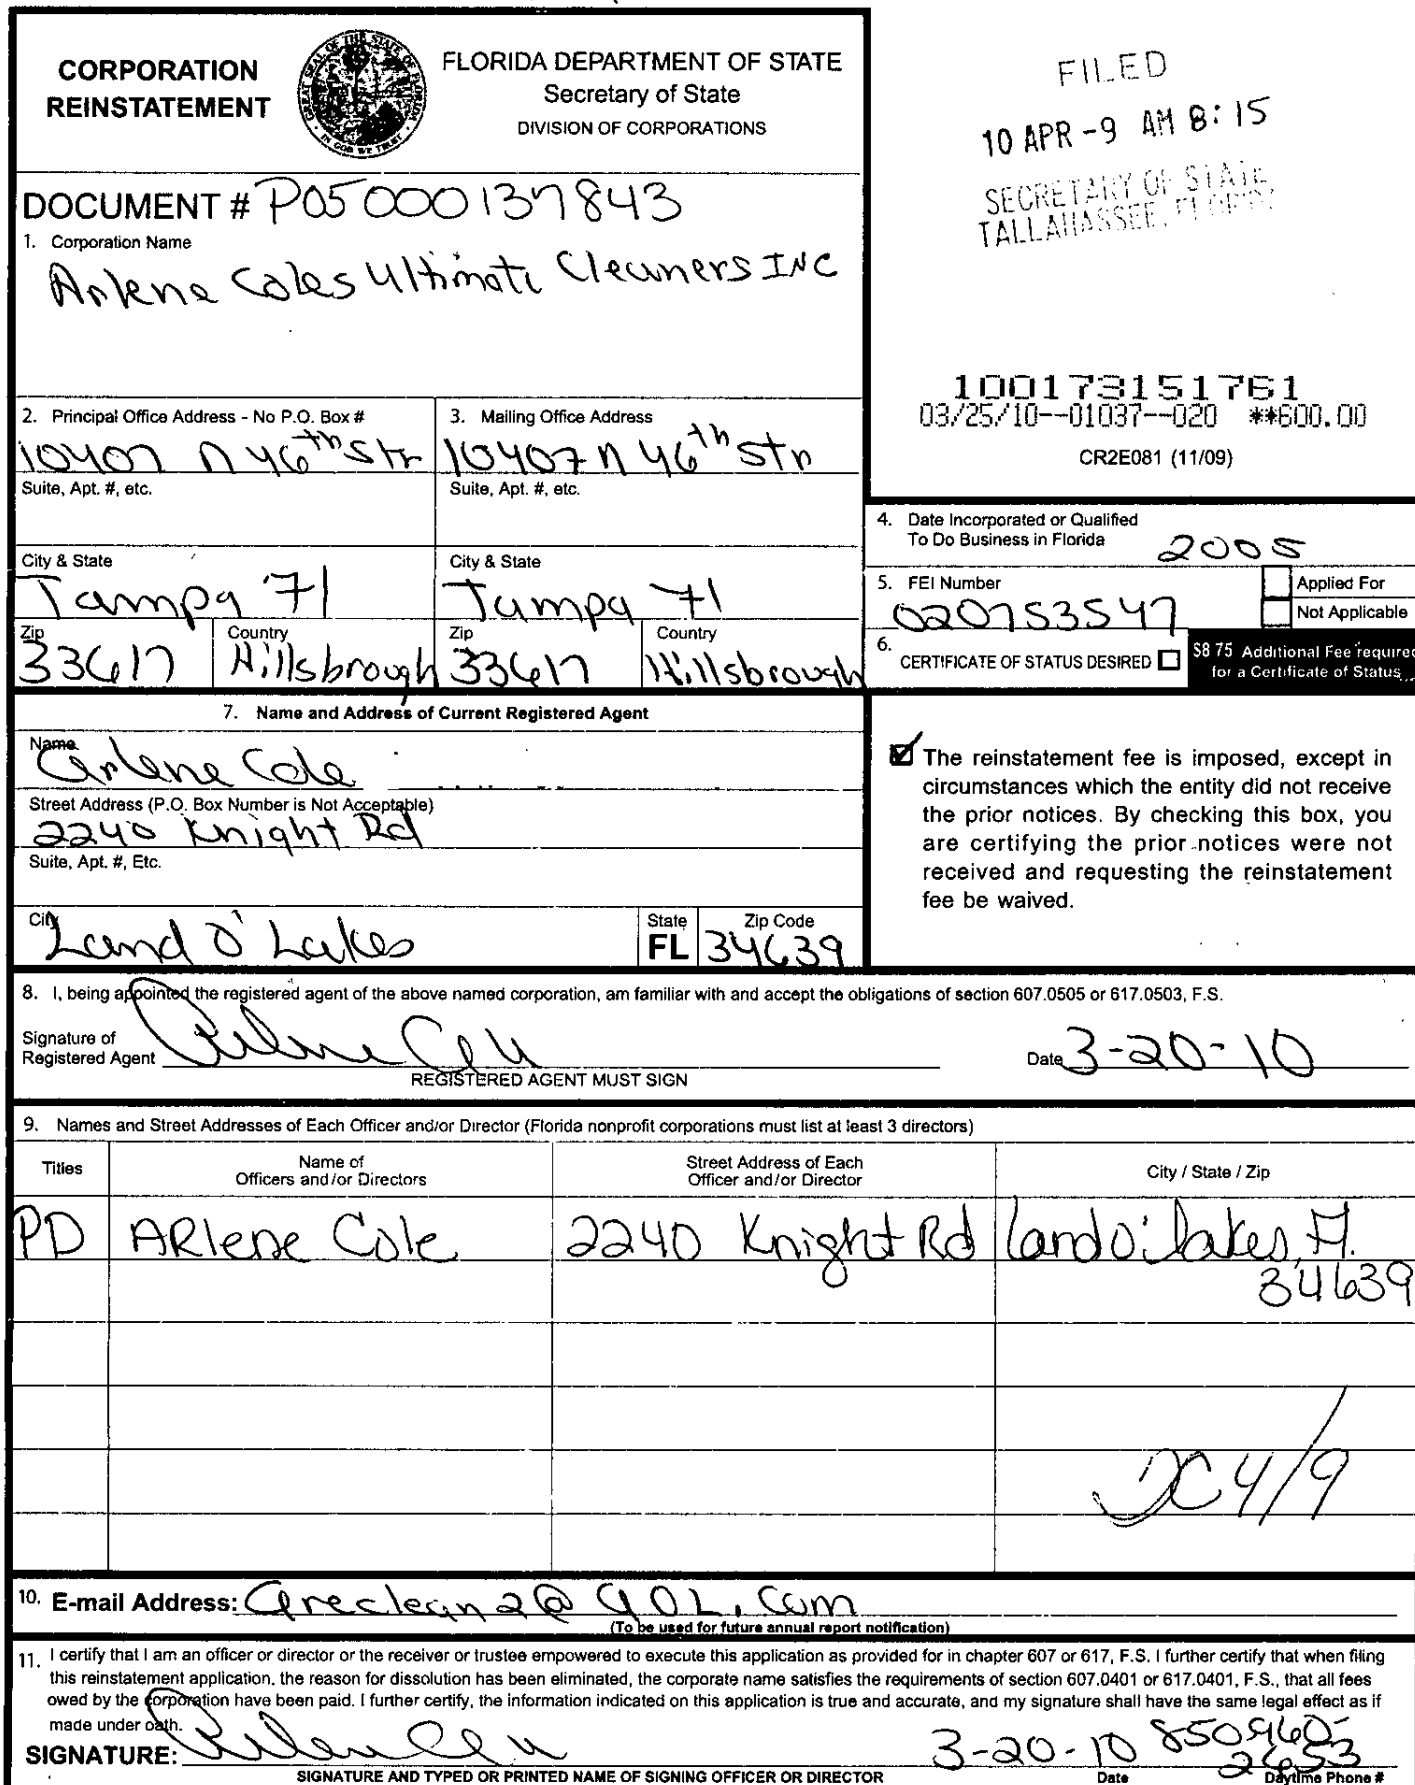 CORPORATION
REINSTATEMENT
FLORIDA DEPARTMENT OF STATE
Secretary of State
DIVISION OF CORPORATIONS
FILED
10 APR -9 AM 8:15
SECRETARY OF STATE
TALLAHASSEE, FLORIDA
DOCUMENT # P05000137843
1. Corporation Name
Arlene Coles Ultimate Cleaners INC
100173151761
03/25/10--01037--020 **600.00
CR2E081 (11/09)
2. Principal Office Address - No P.O. Box #
10407 N 46th Str
Suite, Apt. #, etc.
City & State
Tampa Fl
Zip
33617
Country
Hillsbrough
3. Mailing Office Address
10407 N 46th Str
Suite, Apt. #, etc.
City & State
Tampa Fl
Zip
33617
Country
Hillsbrough
4. Date Incorporated or Qualified
To Do Business in Florida
2005
5. FEI Number
020753547
Applied For
Not Applicable
6.
CERTIFICATE OF STATUS DESIRED
$8 75 Additional Fee required
for a Certificate of Status
7. Name and Address of Current Registered Agent
Name
Arlene Cole
Street Address (P.O. Box Number is Not Acceptable)
2240 Knight Rd
Suite, Apt. #, Etc.
City
Land O' Lakes
State
FL
Zip Code
34639
The reinstatement fee is imposed, except in
circumstances which the entity did not receive
the prior notices. By checking this box, you
are certifying the prior notices were not
received and requesting the reinstatement
fee be waived.
8. I, being appointed the registered agent of the above named corporation, am familiar with and accept the obligations of section 607.0505 or 617.0503, F.S.
Signature of
Registered Agent Arlene Cole
Date 3-20-10
REGISTERED AGENT MUST SIGN
9. Names and Street Addresses of Each Officer and/or Director (Florida nonprofit corporations must list at least 3 directors)
Titles
Name of
Officers and/or Directors
Street Address of Each
Officer and/or Director
City / State / Zip
PD ARlene Cole 2240 Knight Rd land o' lakes, Fl.
34639
4/9
10. E-mail Address: Areclean2@AOL.Com
(To be used for future annual report notification)
11. I certify that I am an officer or director or the receiver or trustee empowered to execute this application as provided for in chapter 607 or 617, F.S. I further certify that when filing
this reinstatement application, the reason for dissolution has been eliminated, the corporate name satisfies the requirements of section 607.0401 or 617.0401, F.S., that all fees
owed by the corporation have been paid. I further certify, the information indicated on this application is true and accurate, and my signature shall have the same legal effect as if
made under oath.
SIGNATURE: Arlene Cole 3-20-10 850960-
2653
SIGNATURE AND TYPED OR PRINTED NAME OF SIGNING OFFICER OR DIRECTOR
Date
Daytime Phone #